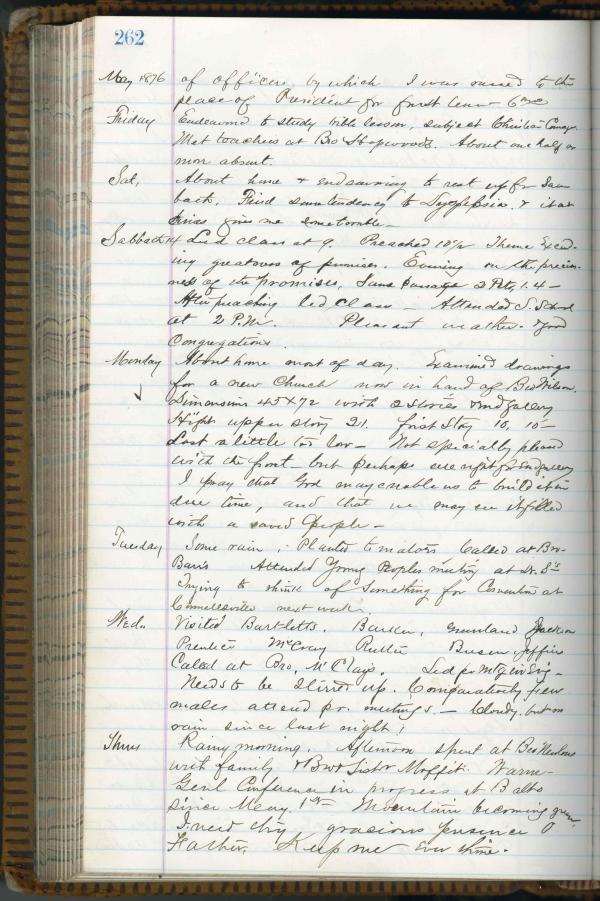 262
May 1876 of officers by which I was raised to the
place of President for first term 6 mos
Friday Endeavored to study bible lesson, subject Christian Courage
Met teachers at Bro Hopwoods. About one half or
more absent.
Sat, About home & endeavoring to rest up for Sab
bath. Find some tendency to Dyspepsia & it at
times gives me some trouble -
Sabbath 14 Led class at 9. Preached 10 1/2 Theme Exceed-
ing greatness of promises. Evening on the precious-
ness of the promises, Same passage 2 Pet, 1. 4 -
After preaching led class - Attended S. School
at 2 P.M. Pleasant weather. & good
Congregations.
Monday About home most of day. Examined drawings
for a new Church now in hand of Bro Wilson.
Dimensions 45 x 72 with 2 stories & end gallery
Hight upper story 21. first story 10, 10 -
Last a little too low - Not specially pleased
with the front - but perhaps are right for end gallery
I pray that God may enable us to build it in
due time, and that we may see it filled
with a saved people -
Tuesday Some rain; Planted tomatoes Called at Bro-
Attended Young Peoples meeting at Dr. S's
Trying to think of something for Convention at
Connellsville next week.
Wed.. Visited Bartletts. Barker, Greenland Jackson
Prentice McCray Rutter
Called at Bro. McClays. Led pr mtg in Eve -
Needs to be stirred up. Comparatively few
males attend pr. meetings. - Cloudy. but no
rain since last night;
Thurs Rainy morning. Afternoon spent at Bro
with family & Bro & Sister Moffit. Warm -
Genl Conference in progress at Balto
since May. 1st - Mountain becoming green.
I need thy gracious presence O
Father, Keep me ever thine.